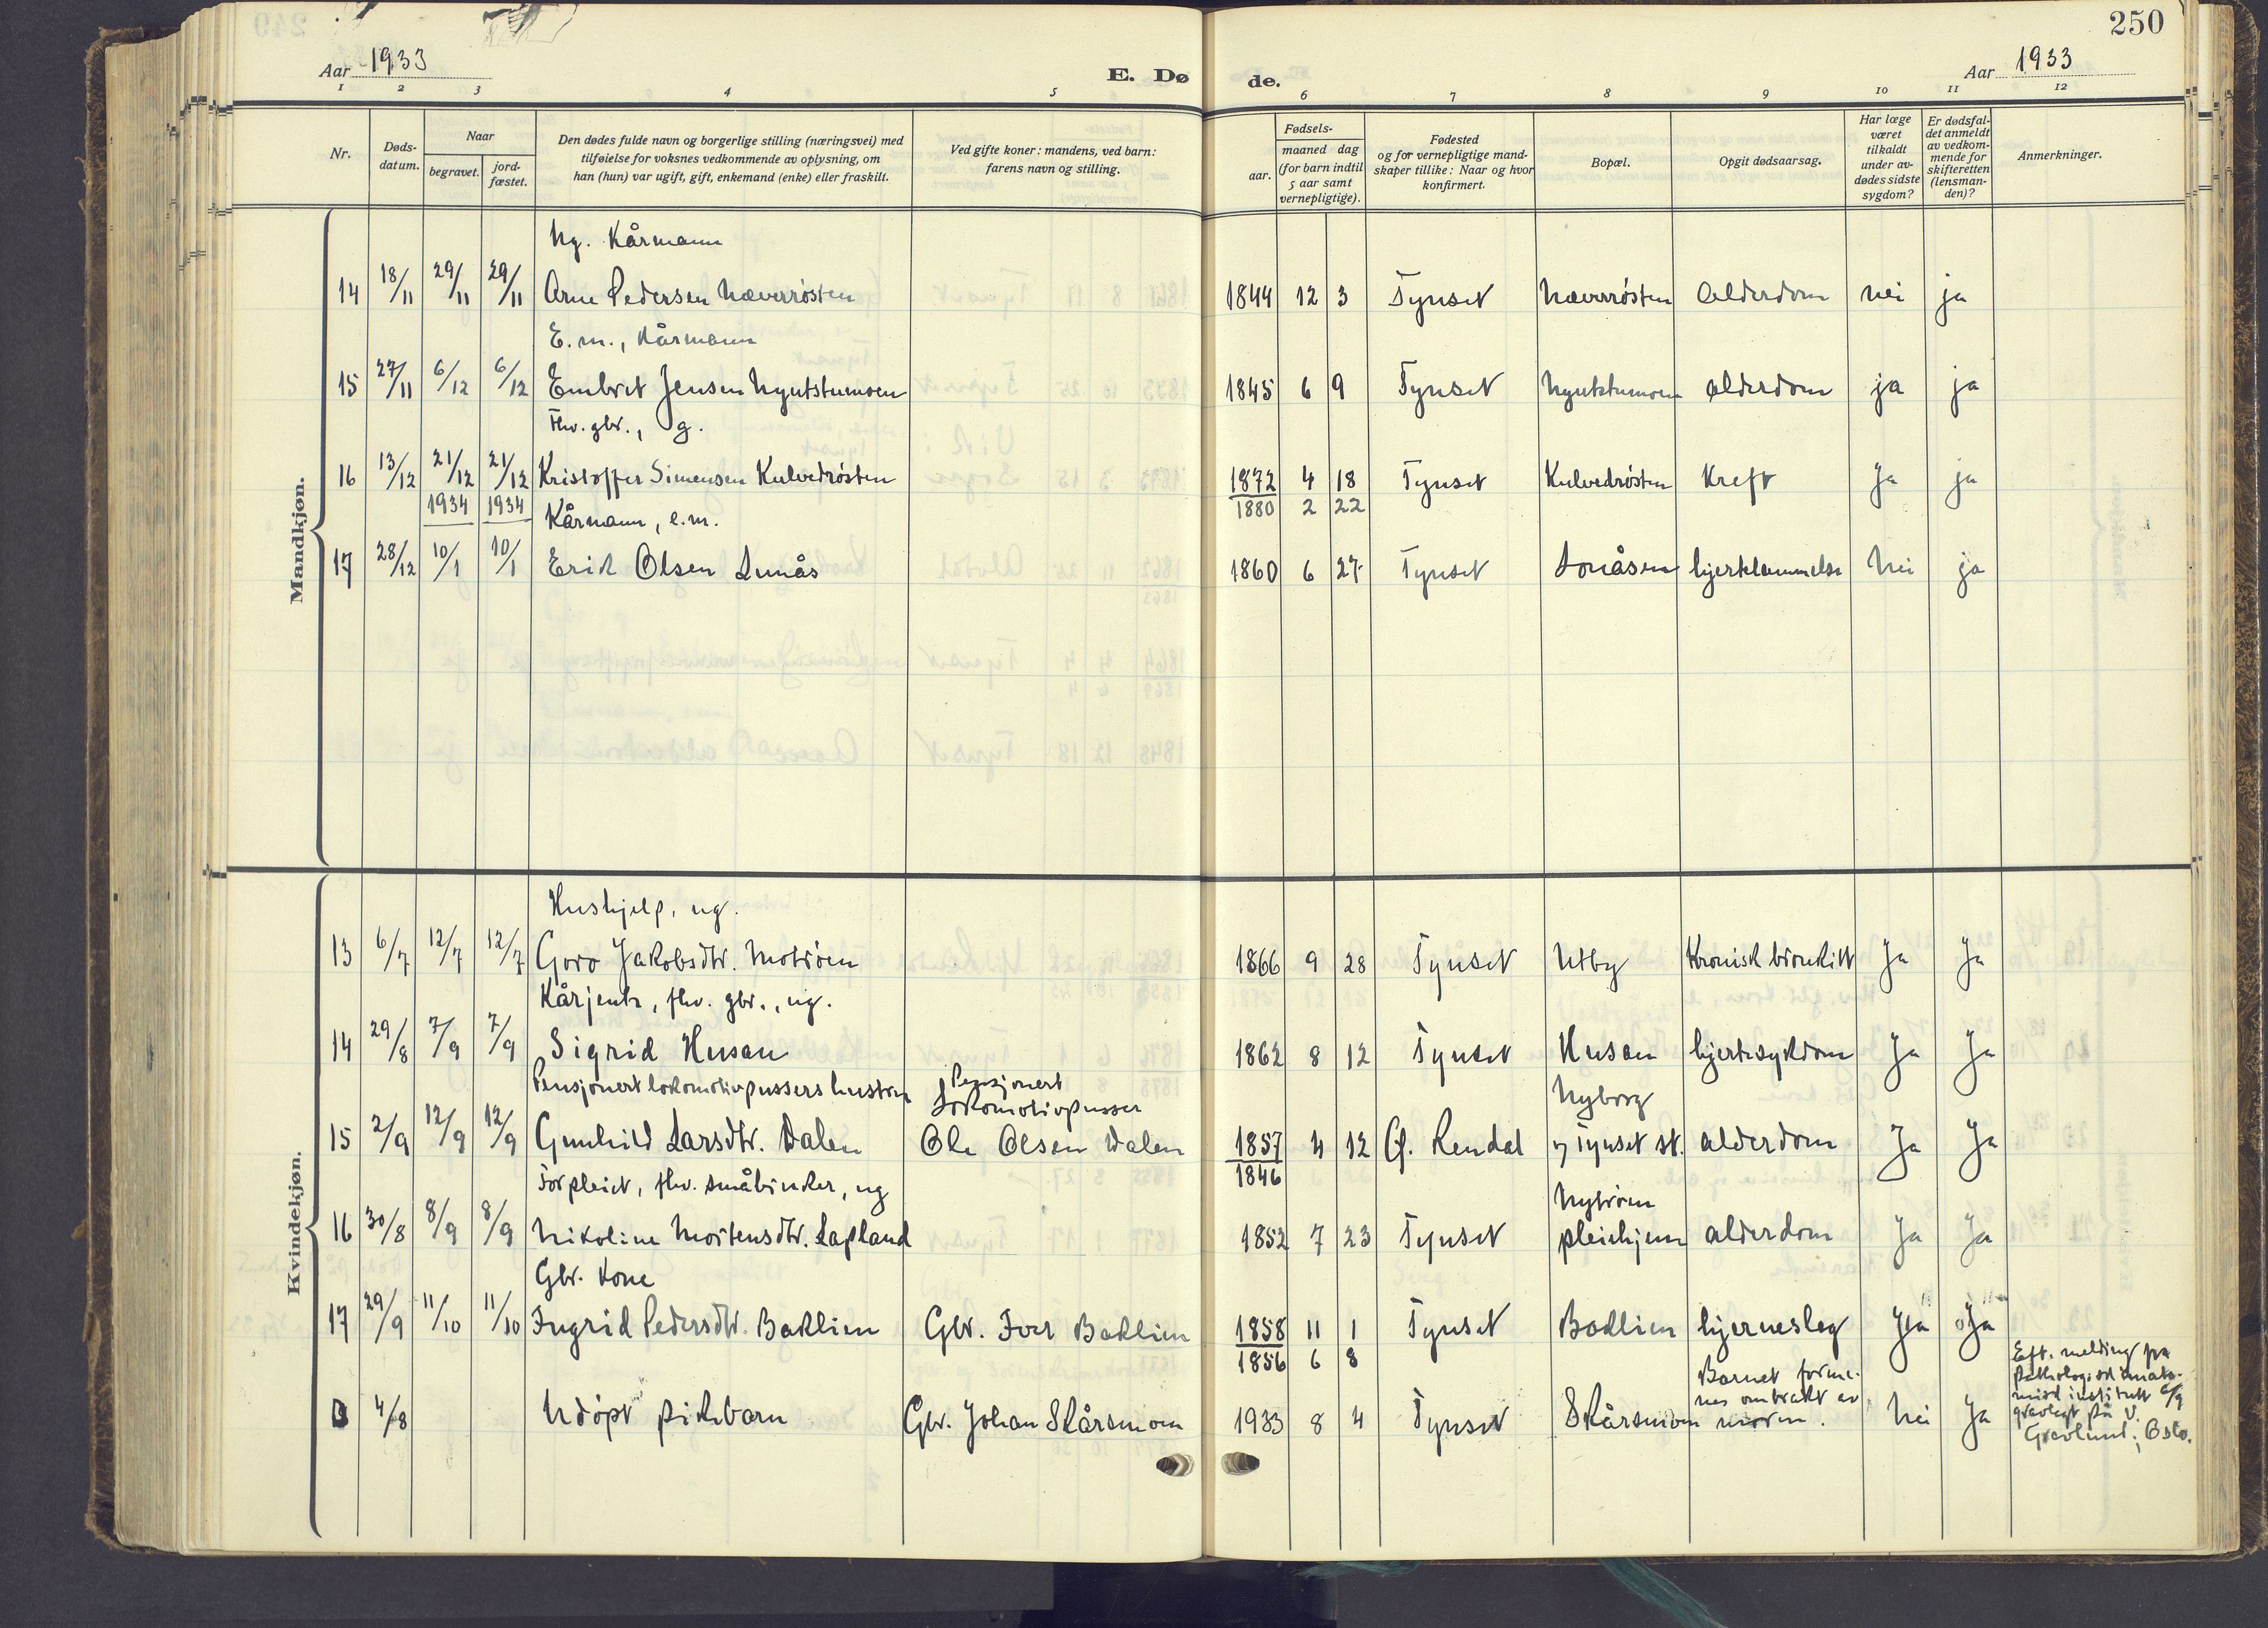 250
Aar 1933
E. Dø
de.
Aar 1933
1 2 3 4 5 6 7 8 9 10 11 12
Nr.
Døds-
datum.
Naar
begravet.
jord-
fæstet.
Den dødes fulde navn og borgerlige stilling (næringsvei) med
tilføielse for voksnes vedkommende av oplysning, om
han (hun) var ugift, gift, enkemand (enke) eller fraskilt.
Ved gifte koner: mandens, ved barn:
farens navn og stilling.
Fødsels-
aar.
maaned dag
(for barn indtil
5 aar samt
vernepligtige).
Fødested
og for vernepligtige mand-
skaper tillike: Naar og hvor
konfirmert.
Bopæl.
Opgit dødsaarsag.
Har læge
været
tilkaldt
under av-
dødes sidste
sygdom?
Er dødsfal-
det anmeldt
av vedkom-
mende for
skifteretten
(lensman-
den)?
Anmerkninger.
Mandkjøn.
Ug. Kårmann
14 18/11 29/11 29/11 Arne Pedersen Næverrösten 1844 12 3 Tynset Næverrösten Alderdom nei ja
E.m., Kårmann
15 27/11 6/12 6/12 Embret Jensen Nyutstumoen 1845 6 9 Tynset Nyutstumoen Alderdom ja ja
Fhv. gbr., g.
16 13/12 21/12 21/12 Kristoffer Simensen Kulvedrösten 1872 4 18 Tynset Kulvedrösten Kreft Ja ja
1934 1934 Kårmann, e.m. 1880 2 22
17 28/12 10/1 10/1 Erik Olsen Lunås 1860 6 27 Tynset Lonåsen hjertelammelse Nei ja
Kvindekjøn.
Hushjelp, ug.
13 6/7 12/7 12/7 Goro Jakobsdtr. Motröen 1866 9 28 Tynset Utby Kronisk bronkitt Ja Ja
Kårjente, fhv. gbr., ug.
14 29/8 7/9 7/9 Sigrid Husan 1862 8 12 Tynset Husan hjertesykdom Ja Ja
Pensjonert lokomotivpussers hustru Pensjonert
Lokomotivpusser Nyborg
15 2/9 12/9 12/9 Gunhild Larsdtr. Dalen Ole Olsen Dalen 1857 4 12 Ö. Rendal Tynset st. alderdom Ja Ja
Forpleiet, fhv. småbruker, ug 1846 Nytröen
16 30/8 8/9 8/9 Nikoline Mortensdtr. Lapland 1852 7 23 Tynset pleiehjem alderdom Ja Ja
Gbr. kone
17 29/9 11/10 11/10 Ingrid Pedersdtr. Baklien Gbr. Iver Baklien 1858 11 1 Tynset Baklien hjerneslag Ja Ja
1856 6 8
D 4/8 Udöpt pikebarn Gbr. Johan Skårsmoen 1933 8 4 Tynset Skårsmoen
Barnet forme-
nes ombrakt av
moren.
Nei Ja
Eft. melding fra
Pathologisk anato-
misk institutt 6/9
gravlagt på V.
Gravlund, Oslo.